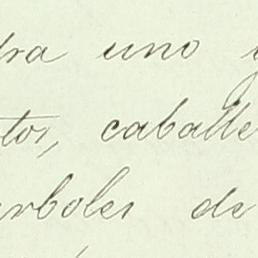 tra uno y
tos, caballe
arboles de